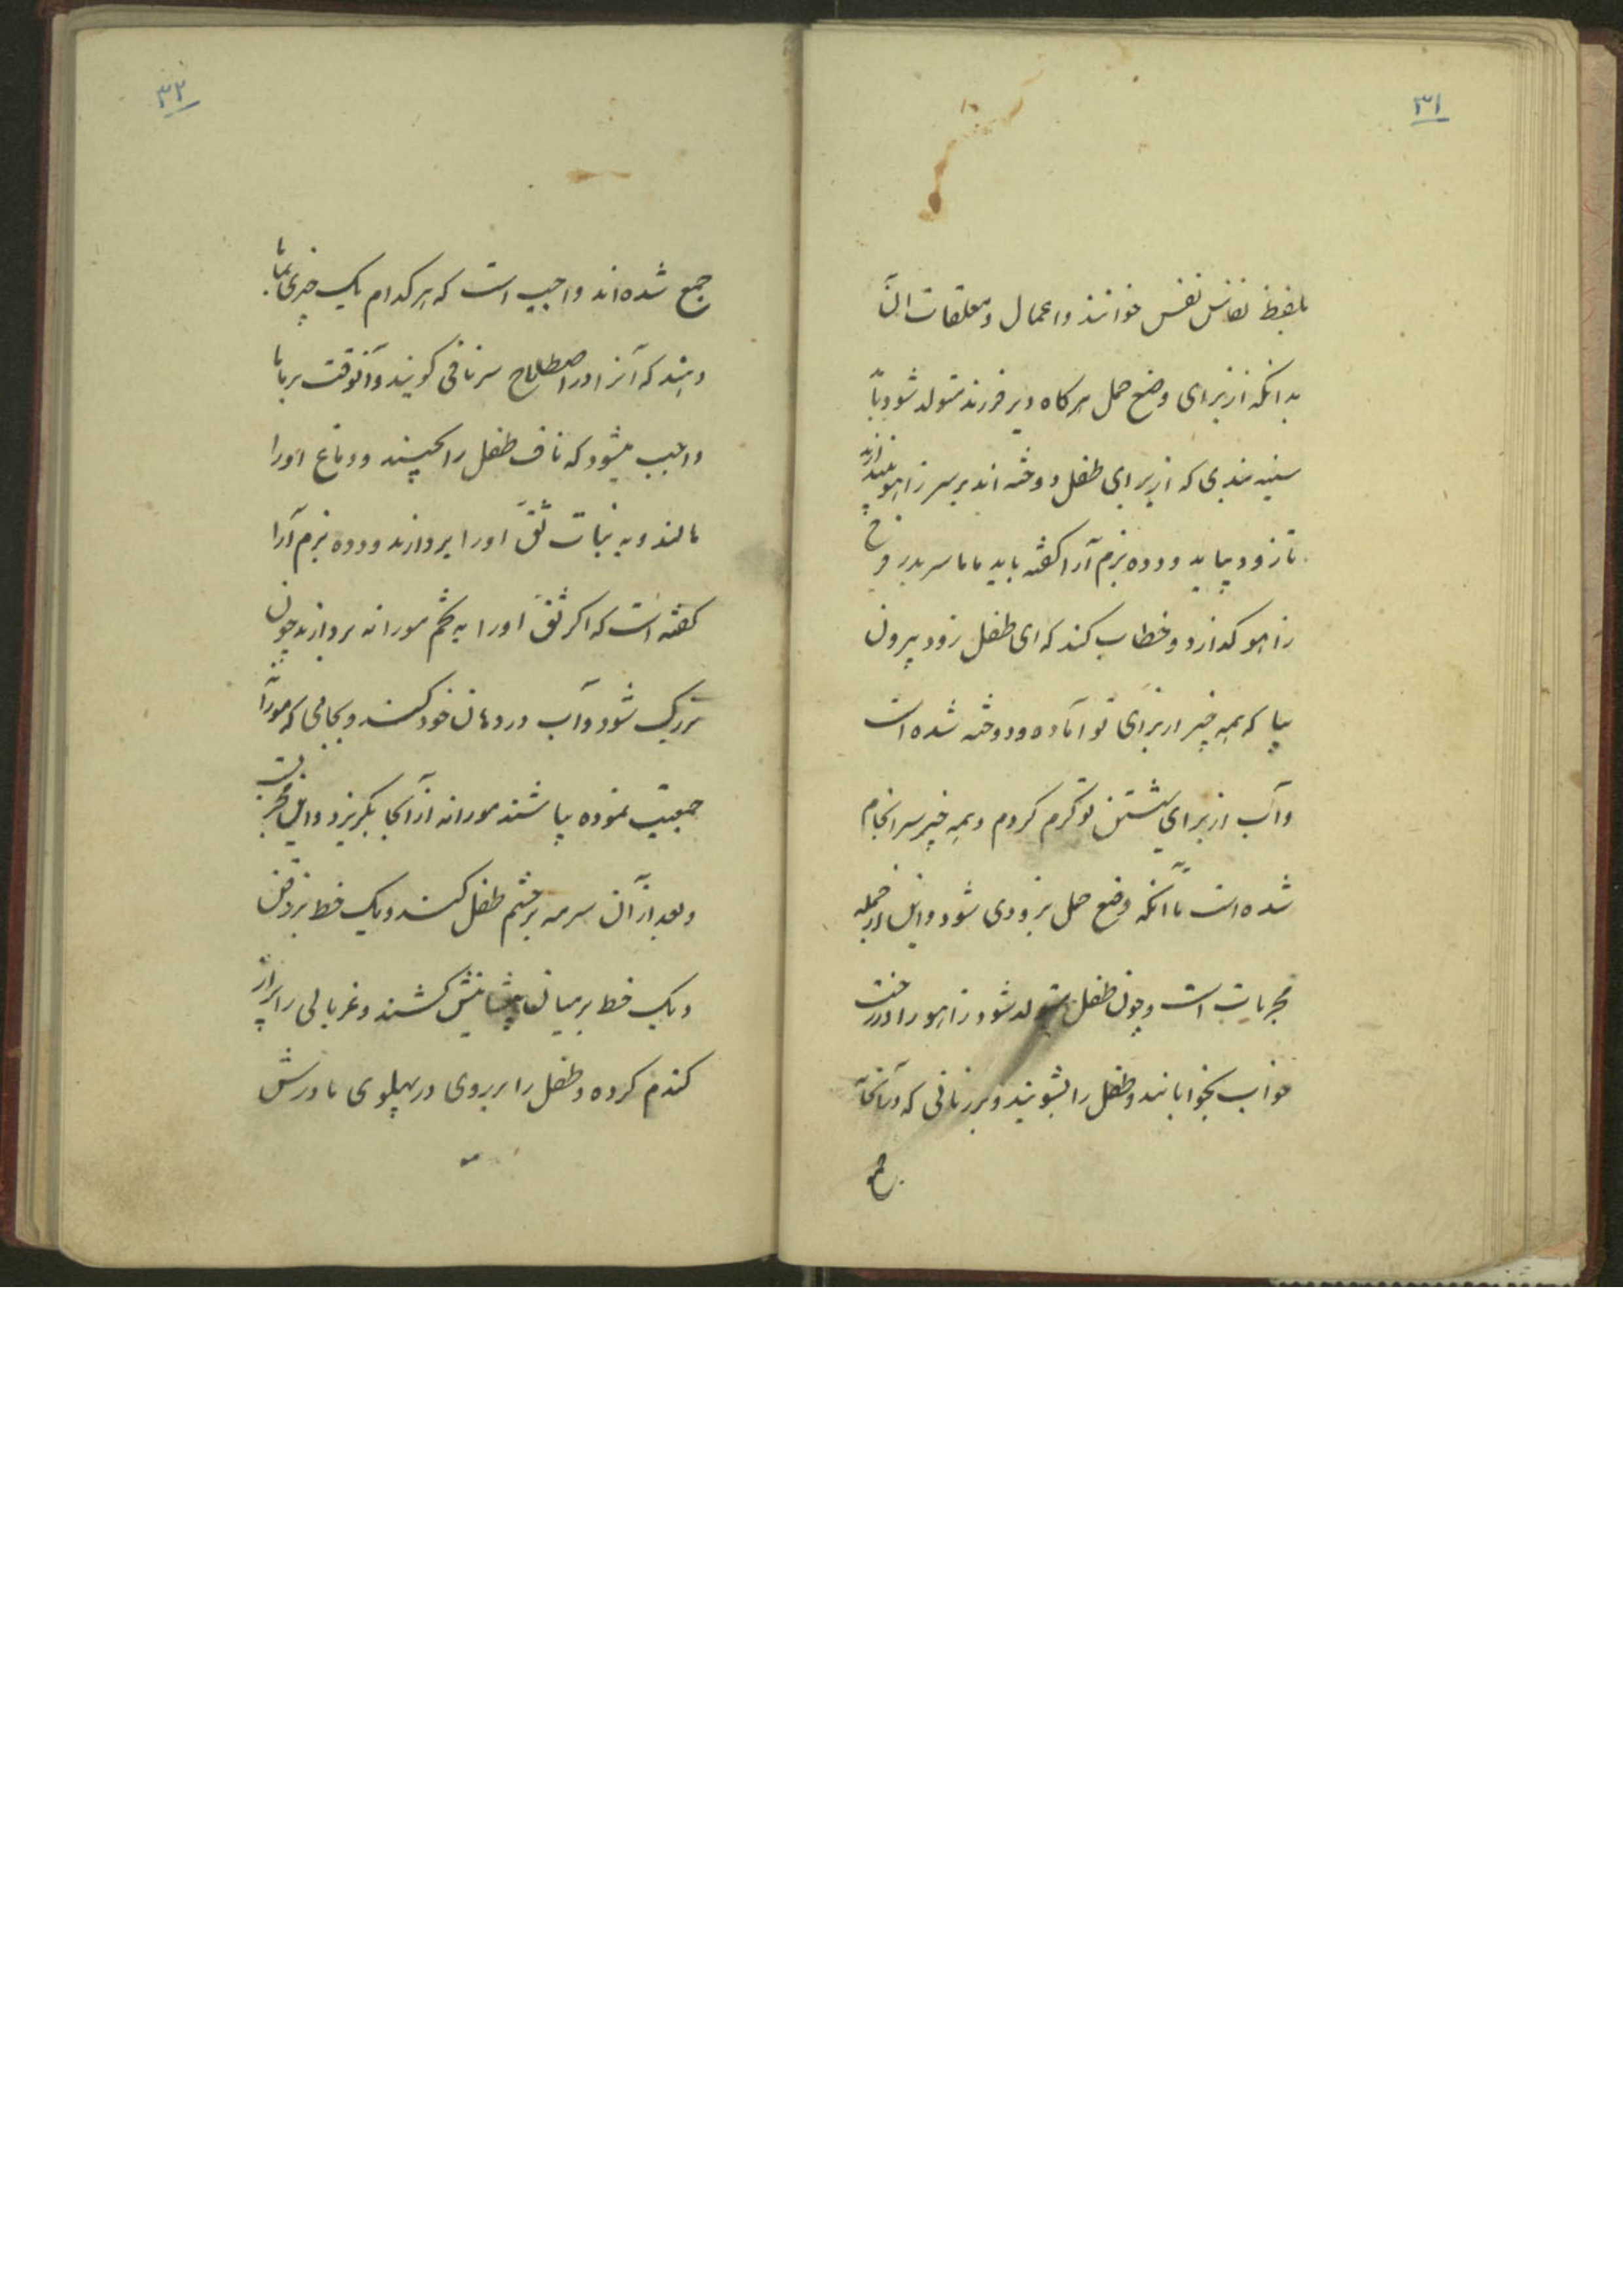 ۳۱
بلفظ نفاس نفس خوانند و اعمال و معلقات ان
بدانكه از برای وضع حمل هر كاه دیر فرزند متولد شود باید
سینه بندی كه از برای طفل دوخته اند بر سر زاهو بیندازند
تا زود بیاید و دده بزم آرا كفته باید ماما سر بدر فرج
زاهو كذارد و خطاب كند كه ای طفل زود بیرون
بیا كه همه چیز از برای تو آماده و دوخته شده است
و آب از برای شستن تو كرم كردم و همه چیز سرانجام
شده است تا آنكه وضع حمل بزودی شود و این از جمله
مجربات است و چون طفل متولد شود زاهو را در رخت
خواب بخوابانند و طفل را بشویند و بر زنانی كه در آنجا
جمع
۳۲
جمع شده اند واجب است كه هر كدام یك چیزی بماما
دهند كه آنرا در اصطلاح سر نافی كویند و آنوقت بر ماما
واجب میشود كه ناف طفل را بچیند و دماغ اورا
مالند و به نبات ثقّ اورا بردارند و دده بزم آرا
كفته است كه اكر ثقّ اورا به تخم مورانه بردارند چون
بزرك شود و آب در دهان خود كند و بجائی كه مورانه
جمعیت نموده بپاشند مورانه از آنجا بگریزد و این مجربست
و بعد از آن سرمه بر چشم طفل كشند و یك خط بر ذقن
و یك خط بر میان پیشانیش كشند و غربالی را پر از
كندم كرده و طفل را بر روی در پهلوی مادرش